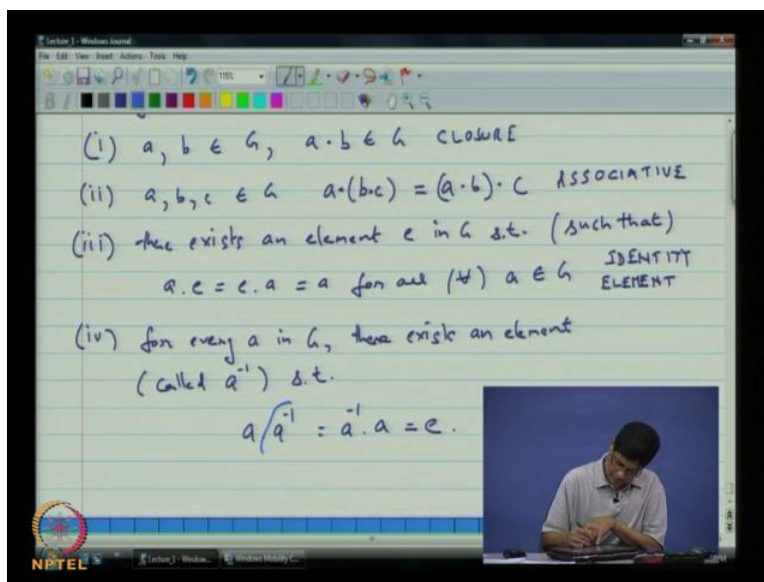 Lecture_1 - Windows Journal
File Edit View Insert Actions Tools Help
115%
B I
(i) a, b ∈ G, a · b ∈ G CLOSURE
(ii) a, b, c ∈ G a·(b·c) = (a·b)·c ASSOCIATIVE
(iii) there exists an element e in G s.t. (such that)
a.e = e.a = a for all (∀) a ∈ G IDENTITY
ELEMENT
(iv) for every a in G, there exists an element
(called a⁻¹) s.t.
a a⁻¹ = a⁻¹. a = e.
NPTEL
Lecture_1 - Window... Windows Mobility C...